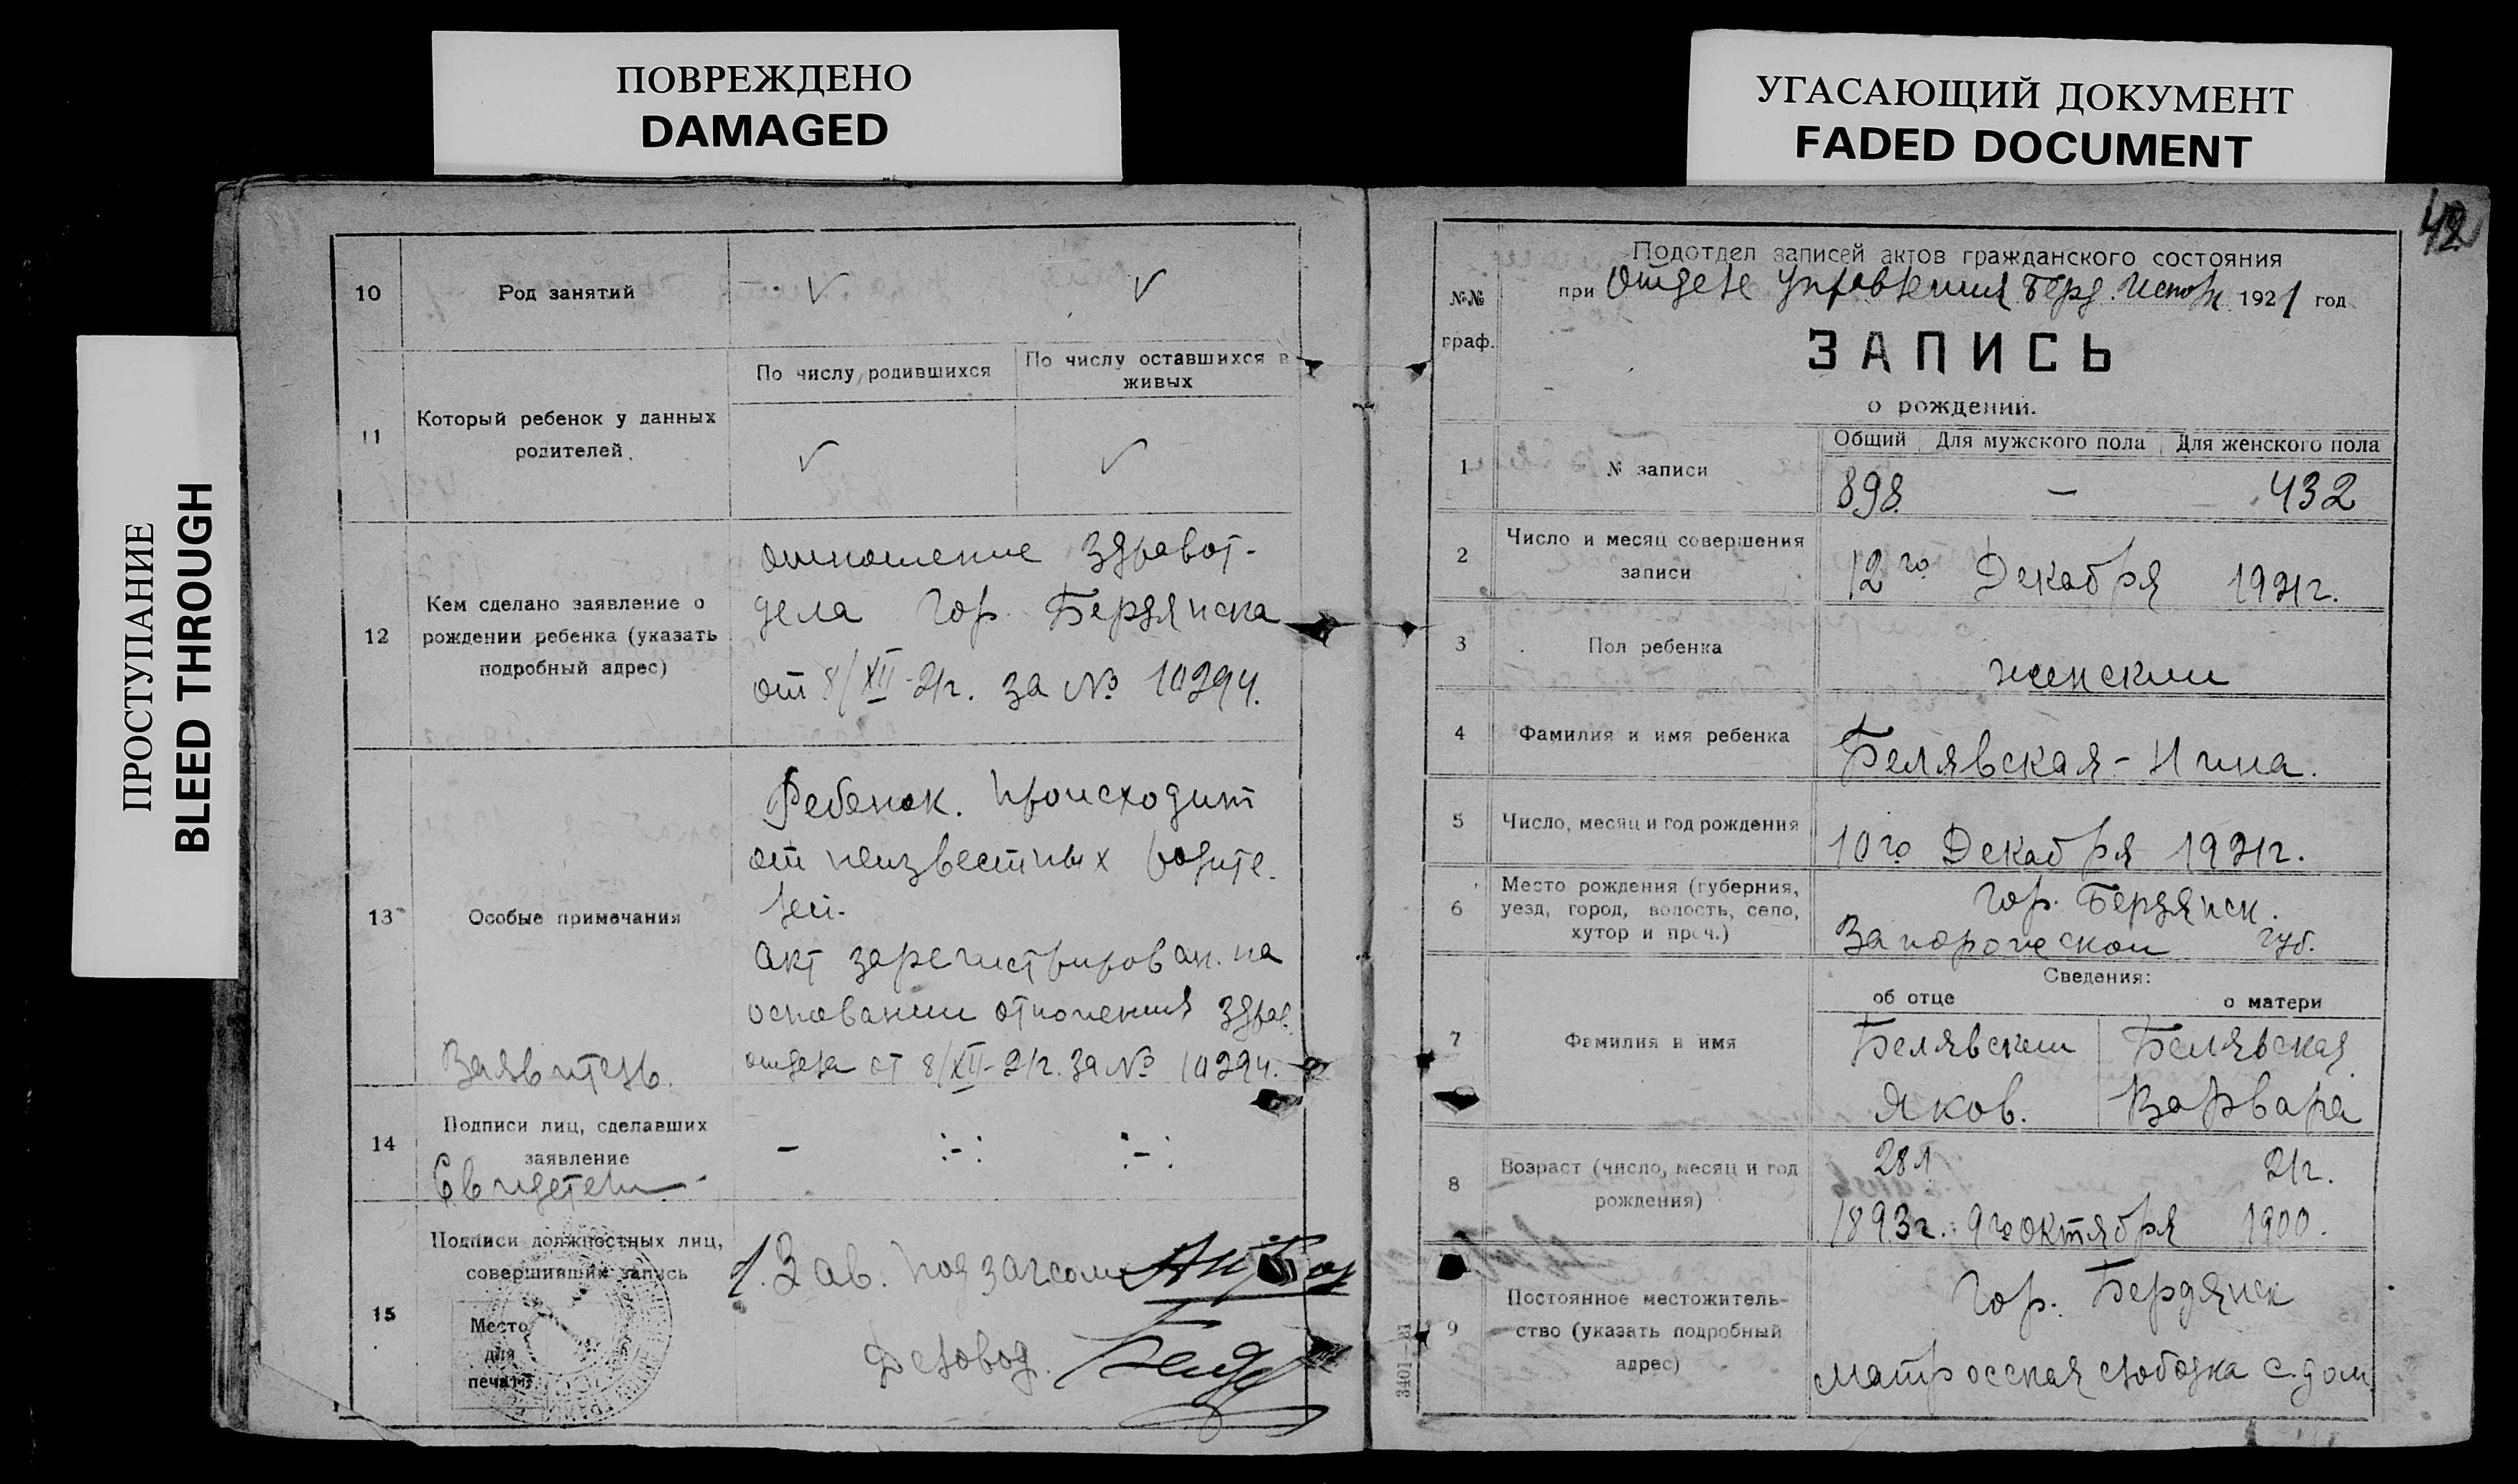 ПОВРЕЖДЕНО
DAMAGED
УГАСАЮЩИЙ ДОКУМЕНТ
FADED DOCUMENT
ПРОСТУПАНИЕ
BLEED THROUGH
10
Род занятий
11
Который ребенок у данных
родителей
По числу родившихся
По числу оставшихся в
живых
12
Кем сделано заявление о
рождении ребенка (указать
подробный адрес)
отношение Здравот-
дела гор. Бердянска
от 8/XII-21г. за № 10294.
13
Особые примечания
Ребенок. происходит
от неизвестных родите-
лей.
Акт зарегистрирован. на
основании отношения здрав.
отдела от 8/XII-21г. за № 10294.
Заявитель.
14
Подписи лиц, сделавших
заявление
Свидетели
15
Подписи должностных лиц,
совершивших запись
Место
для
печати
1. Зав. подзагсом
Деловод.
42
№№
граф.
Подотдел записей актов гражданского состояния
при Отделе Управления Берд. Исполк 1921 год
ЗАПИСЬ
о рождении.
1
№ записи
Общий Для мужского пола Для женского пола
898 — 432
2
Число и месяц совершения
записи
12го Декабря 1921г.
3
Пол ребенка
женский
4
Фамилия и имя ребенка
Белявская - Нина.
5
Число, месяц и год рождения
10го Декабря 1921г.
6
Место рождения (губерния,
уезд, город, волость, село,
хутор и проч.)
гор. Бердянск.
Запорожской губ.
Сведения:
об отце о матери
7
Фамилия и имя
Белявский Белявская
Яков. Варвара
8
Возраст (число, месяц и год
рождения)
28 л 21г.
1893г. 9го октября 1900.
9
Постоянное местожитель-
ство (указать подробный
адрес)
гор. Бердянск
матросская слободка с. дом
3401—21